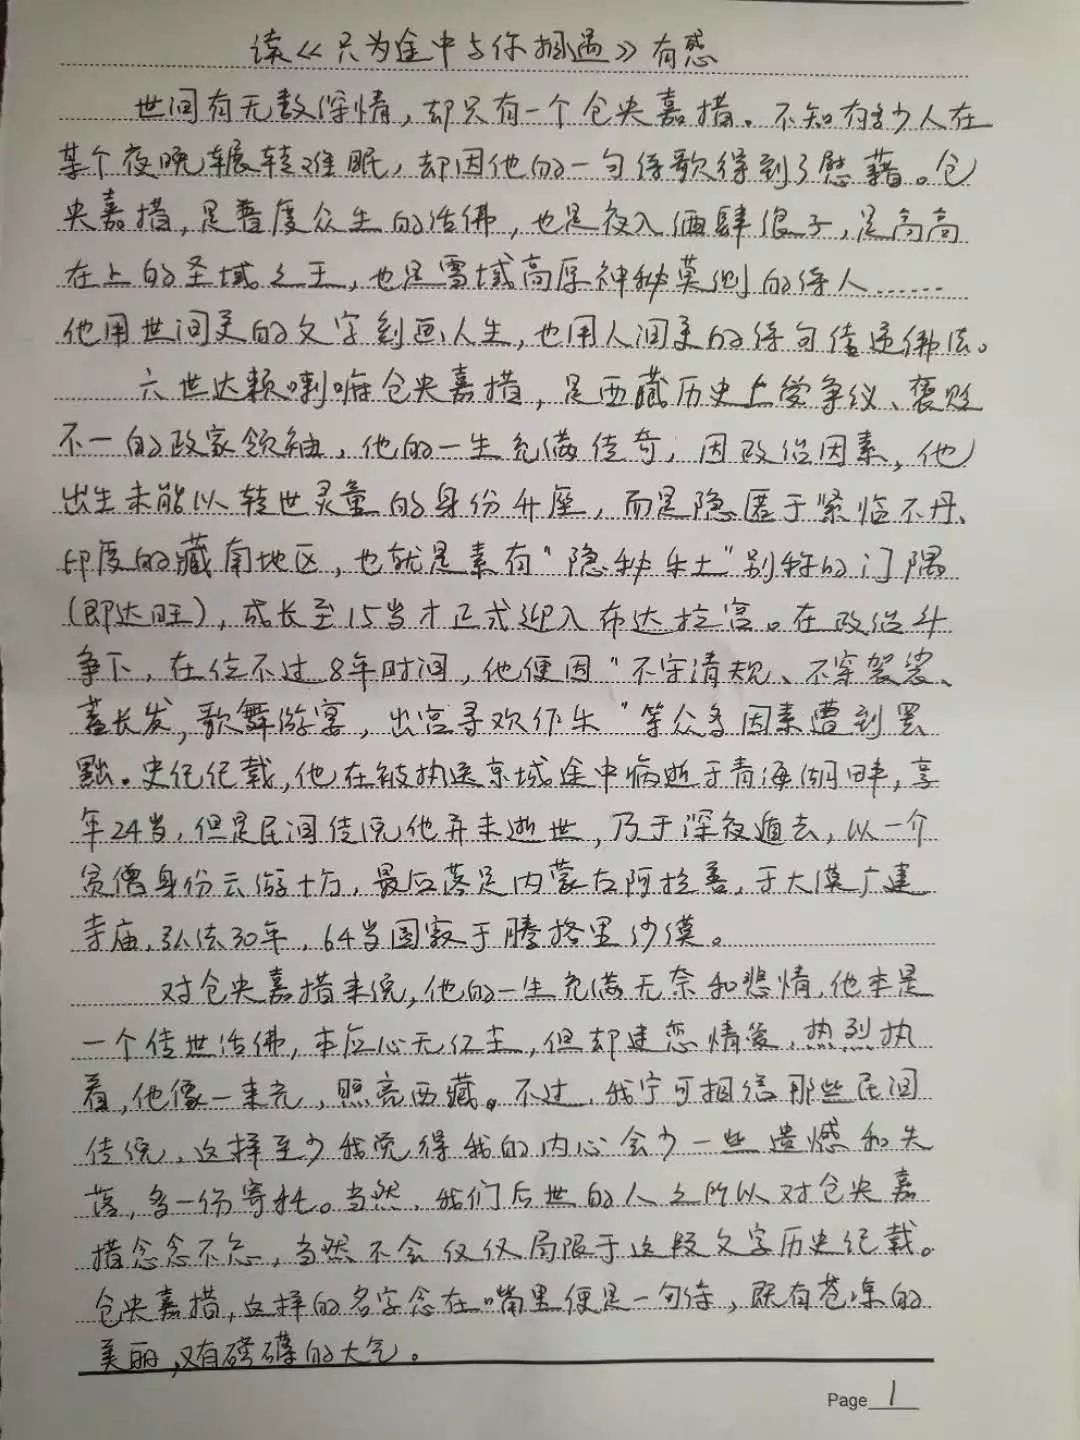 读《只为途中与你相遇》有感
世间有无数深情，却只有一个仓央嘉措。不知有多少人在
某个夜晚辗转难眠，却因他的一句诗歌得到了慰藉。仓
央嘉措，是普度众生的活佛，也是夜入酒肆浪子，是高高
在上的圣域之王，也是雪域高原神秘莫测的诗人……
他用世间美的文字刻画人生，也用人间美的诗句传递佛法。
六世达赖喇嘛仓央嘉措，是西藏历史上受争议、褒贬
不一的政家领袖，他的一生充满传奇，因政治因素，他
出生未能以转世灵童的身份升座，而是隐匿于紧临不丹、
印度的藏南地区，也就是素有“隐秘乐土”别称的门隅
(即达旺)，成长至15岁才正式迎入布达拉宫。在政治斗
争下，在位不过8年时间，他便因“不守清规、不穿袈裟、
蓄长发，歌舞游宴，出宫寻欢作乐”等众多因素遭到罢
黜。史纪纪载，他在被执送京城途中病逝于青海湖畔，享
年24岁，但是民间传说他并未逝世，乃于深夜遁去，以一介
贫僧身份云游十方，最后落足内蒙古阿拉善，于大漠广建
寺庙，弘法30年，64岁圆寂于腾格里沙漠。
对仓央嘉措来说，他的一生充满无奈和悲情，他本是
一个传世活佛，本应心无红尘，但却迷恋情爱，热烈执
着，他像一束光，照亮西藏。不过，我宁可相信那些民间
传说，这样至少我觉得我的内心会少一些遗憾和失
落，多一份寄托。当然，我们后世的人之所以对仓央嘉
措念念不忘，当然不会仅仅局限于这段文字历史纪载。
仓央嘉措，这样的名字念在嘴里便是一句诗，既有苍凉的
美丽，又有磅礴的大气。
Page 1